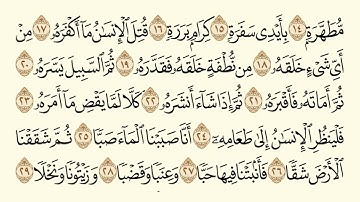 مُّطَهَّرَةٍۭ ١٤ بِأَيْدِى سَفَرَةٍ ١٥ كِرَامٍۭ بَرَرَةٍ ١٦ قُتِلَ ٱلْإِنسَٰنُ مَآ أَكْفَرَهُۥ ١٧ مِنْ
أَىِّ شَىْءٍ خَلَقَهُۥ ١٨ مِن نُّطْفَةٍ خَلَقَهُۥ فَقَدَّرَهُۥ ١٩ ثُمَّ ٱلسَّبِيلَ يَسَّرَهُۥ ٢٠
ثُمَّ أَمَاتَهُۥ فَأَقْبَرَهُۥ ٢١ ثُمَّ إِذَا شَآءَ أَنشَرَهُۥ ٢٢ كَلَّا لَمَّا يَقْضِ مَآ أَمَرَهُۥ ٢٣
فَلْيَنظُرِ ٱلْإِنسَٰنُ إِلَىٰ طَعَامِهِۦٓ ٢٤ أَنَّا صَبَبْنَا ٱلْمَآءَ صَبًّا ٢٥ ثُمَّ شَقَقْنَا
ٱلْأَرْضَ شَقًّا ٢٦ فَأَنۢبَتْنَا فِيهَا حَبًّا ٢٧ وَعِنَبًا وَقَضْبًا ٢٨ وَزَيْتُونًا وَنَخْلًا ٢٩